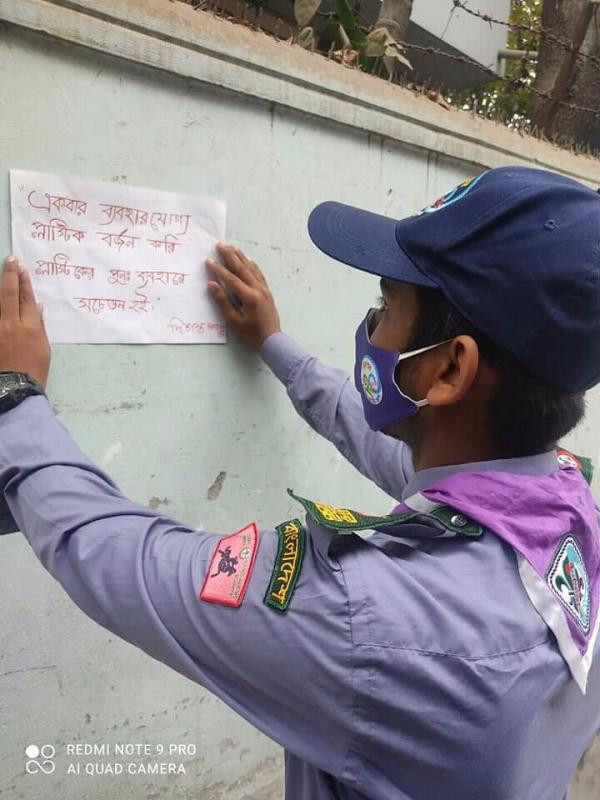 "একবার ব্যবহারযোগ্য
প্লাস্টিক বর্জন করি
প্লাস্টিকের পুনঃ ব্যবহারে
সচেতন হই."
বাংলাদেশ
REDMI NOTE 9 PRO
AI QUAD CAMERA